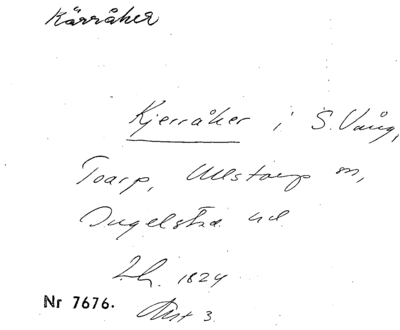 Kärråker
Kjerråker i S. Vång,
Toarp, Ullstorp sn,
Ingelsta hd
1824
Nr 7676. Akt 3.